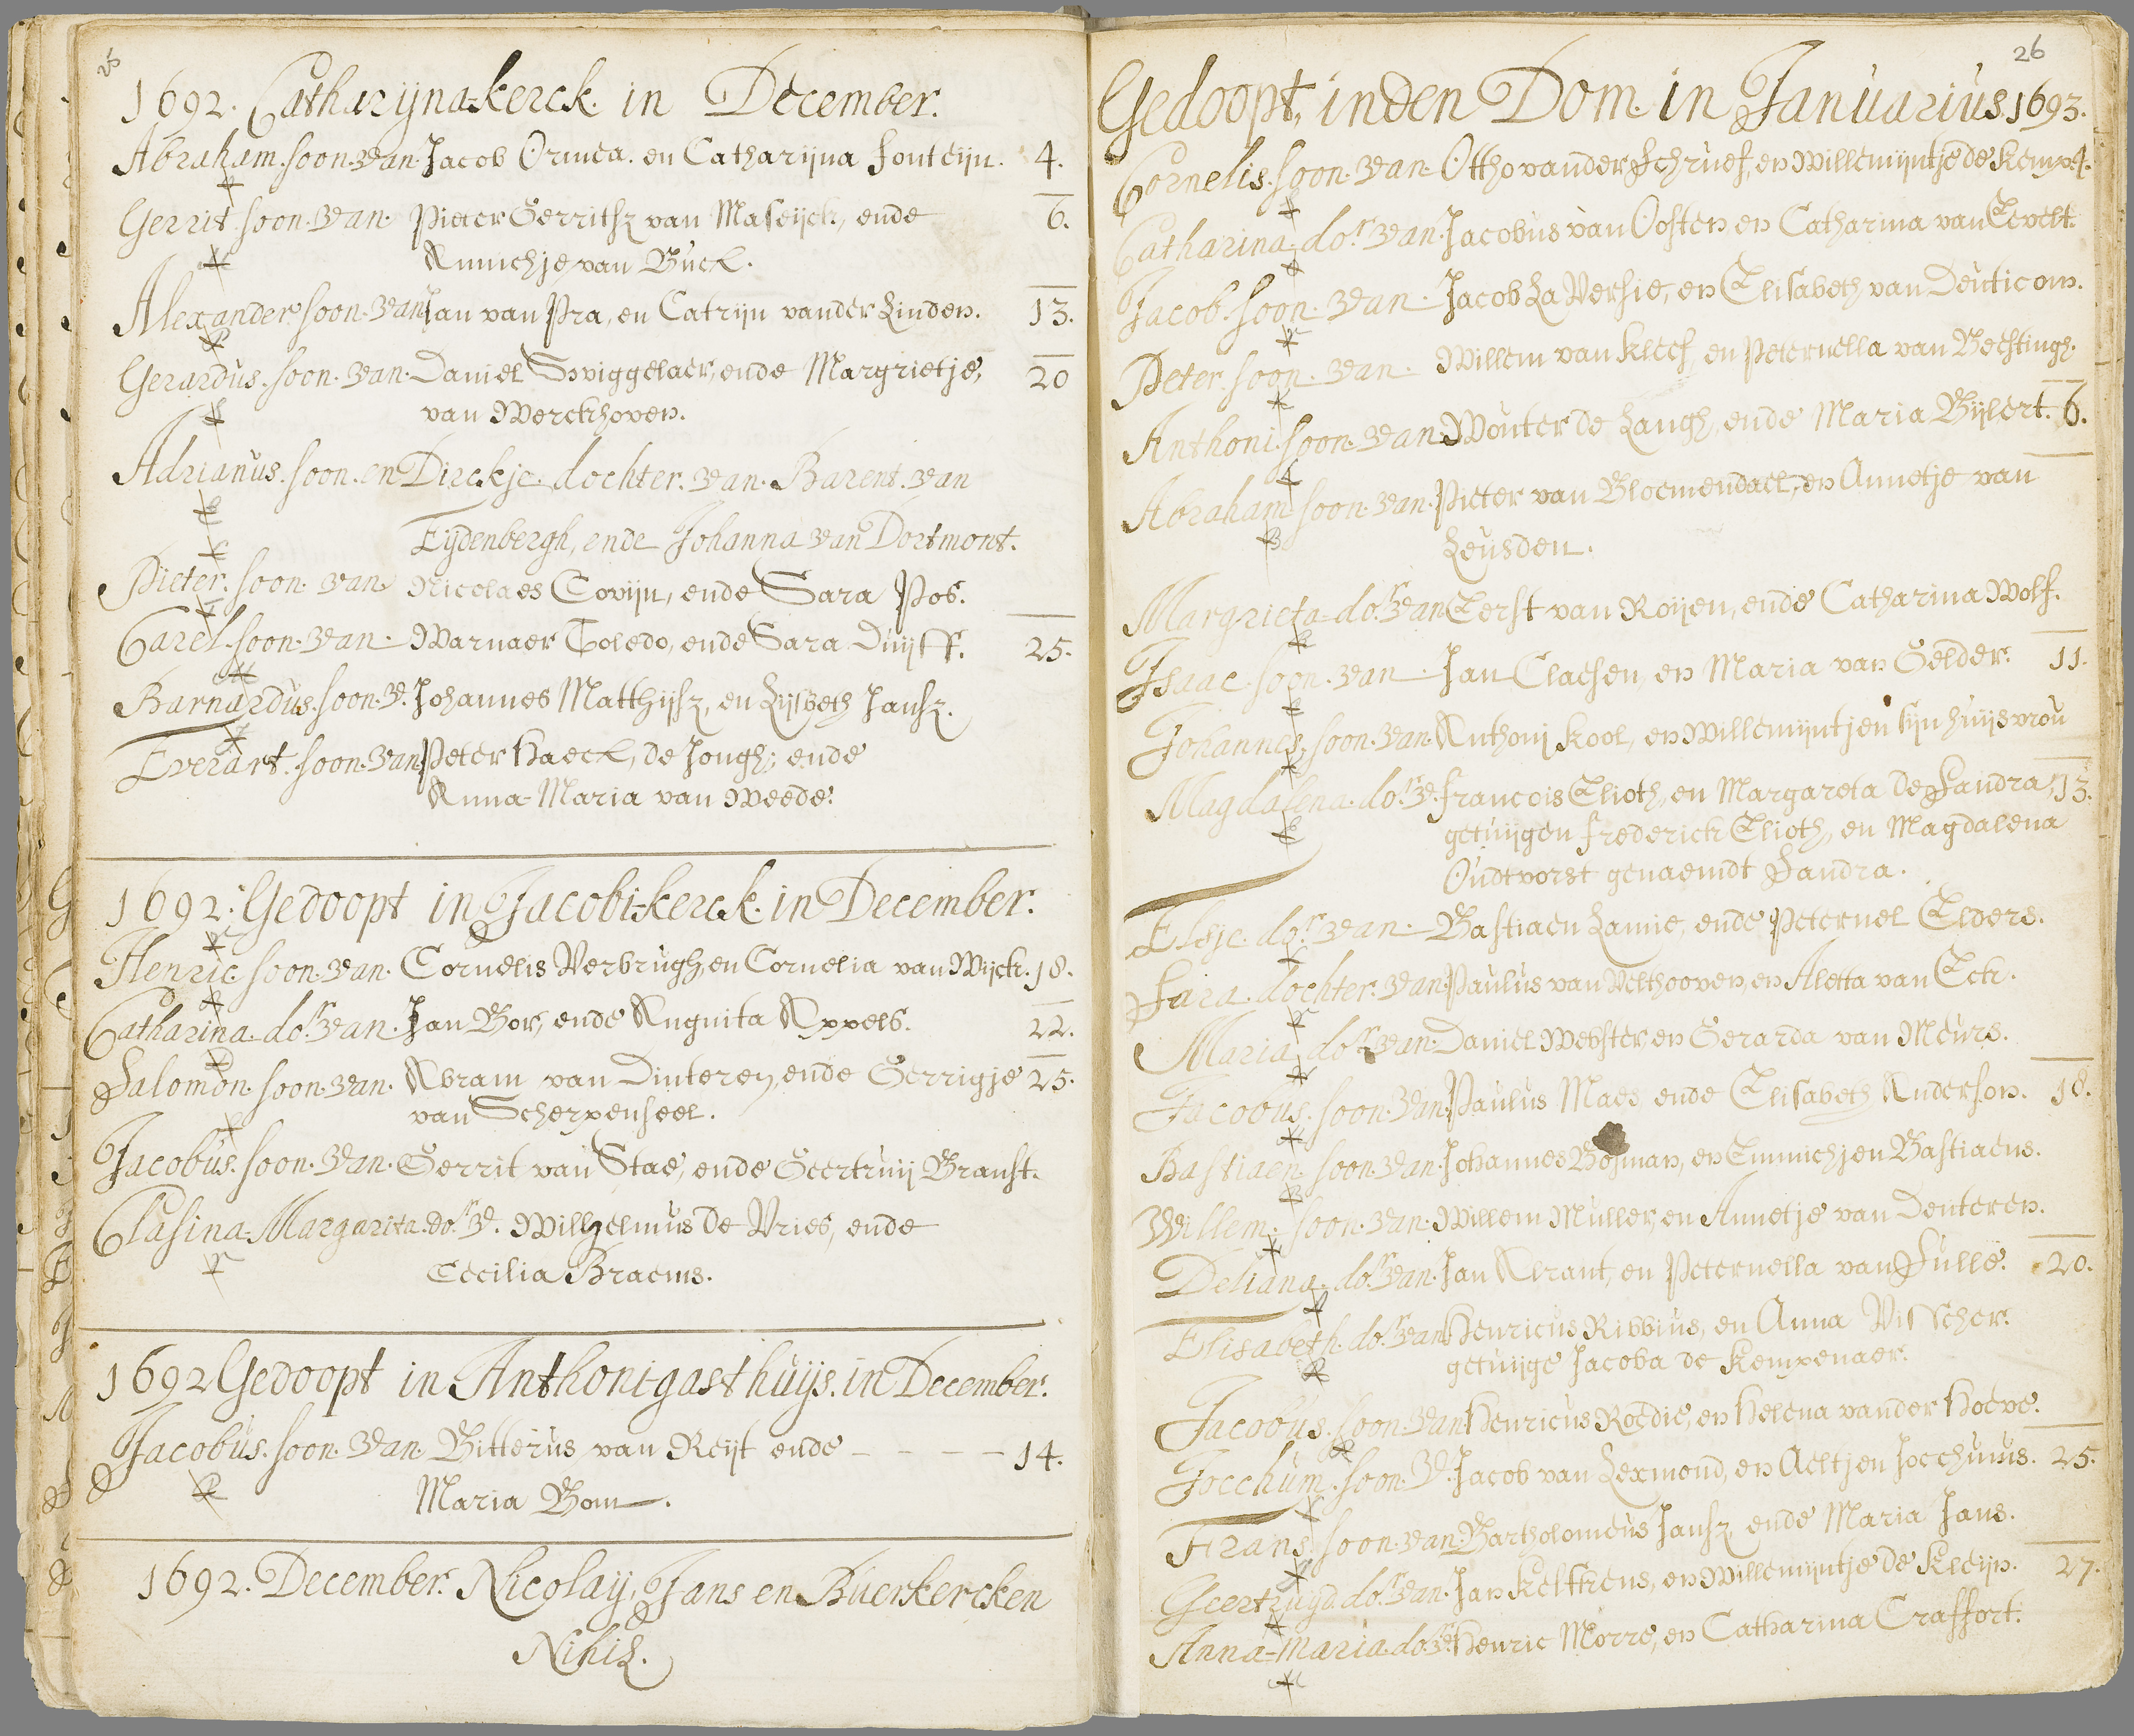 25
1692. Catharijna-kerck. in December.
Abraham. soon. van. Jacob Ormea. en Catharijna fonteijn. 4.
Gerrit soon. van. Pieter Gerritsz van Maseijck, ende 6.
Annichje van Buck.
Alexander soon. van Jan van Pra, en Catrijn vander Linden. 13.
Gerardus. soon. van. Daniel Swiggelaer, ende Margrietje, 20
van Werckhoven.
Adrianus. soon. en Dirckje. dochter. van. Barent. van
Eijdenbergh, ende Johanna van Dortmont.
Pieter. soon. van Nicolaes Covijn, ende Sara Pos.
Carel. soon. van. Warnaer Toledo, ende Sara Duijff. 25.
Barnardus. soon. v. Johannes Matthijsz, en Lijsbeth Jansz.
Everart. soon. van Peter Haeck, de Jongh, ende
Anna-Maria van Weede.
1692. Gedoopt in Jacobi-kerck. in December.
Henric soon. van. Cornelis Verbrugh, en Cornelia van Wijck. 18.
Catharina. dor. van. Jan Bor, ende Angnita Appels. 22.
Salomon. soon. van. Abram van Dinteren, ende Gerrigje 25.
van Scherpenseel.
Jacobus. soon. van. Gerrit van Stae, ende Geertruij Branst.
Clasina-Margarita. dor. v. Wilhelmus de Vries, ende
Cecilia Braems.
1692 Gedoopt in Anthonigasthuijs. in December.
Jacobus. soon. van. Bitterus van Reijt ende - - - - 14.
Maria Bom.
1692. December. Nicolaij, Jans en Buerkercken
Nihil.
26
Gedoopt, in den Dom. in Januarius. 1693.
Cornelis. soon. van. Ottho vander Schruef, en Willemijntje de Kemp. 4.
Catharina. dor. van. Jacobus van Oosten en Catharina van Eevelt.
Jacob. soon. van. Jacob La Versie, en Elisabeth van Deuticom.
Peter. soon. van. Willem van Kleef, en Peternella van Bechtingh.
Anthoni. soon. van. Wouter de Langh, ende Maria Bijlert. 6.
Abraham soon. van. Pieter van Bloemendael, en Annetje van
Leusden.
Margrieta. dor. van Eerst van Roijen, ende Catharina Wolf.
Isaac. soon. van. Jan Claesen, en Maria van Gelder. 11.
Johannes, soon. van. Anthonij Kool, en Willemijntjen sijn huijsvrou
Magdalena. dor. v. francois Elioth, en Margareta de Sandra, 13.
getuijgen frederick Elioth, en Magdalena
Oudtvorst genaemdt Sandra.
Elsje. dor. van. Bastiaen Lamie, ende Peternel Elders.
Sara. dochter. van. Paulus van Velthooven, en Aletta van Eck.
Maria. dor. van. Daniel Webster en Gerarda van Meurs.
Jacobus. soon. van. Paulus Maes, ende Elisabeth Anderson. 18.
Bastiaen soon. van. Johannes Bosman, en Emmichjen Bastiaens.
Willem. soon. van. Willem Muller, en Annetje van Denteren.
Deliana. dor. van. Jan Abrant, en Peternella van Sulle. 20.
Elisabeth. dor. van Henricus Ribbius, en Anna Visscher.
getuijge Jacoba de Kempenaer.
Jacobus. soon. van Henricus Roedie, en Helena vander Hoeve.
Jocchum. soon. v. Jacob van Lexmond, en Aeltjen Jocchums. 25.
Frans soon. van. Bartholomeus Jansz ende Maria Jans.
Geertruijd. dor. van. Jan Kelfkens, en Willemijntje de Kleijn. 27.
Anna-Maria. dor. v. Henric Morre, en Catharina Craffort.